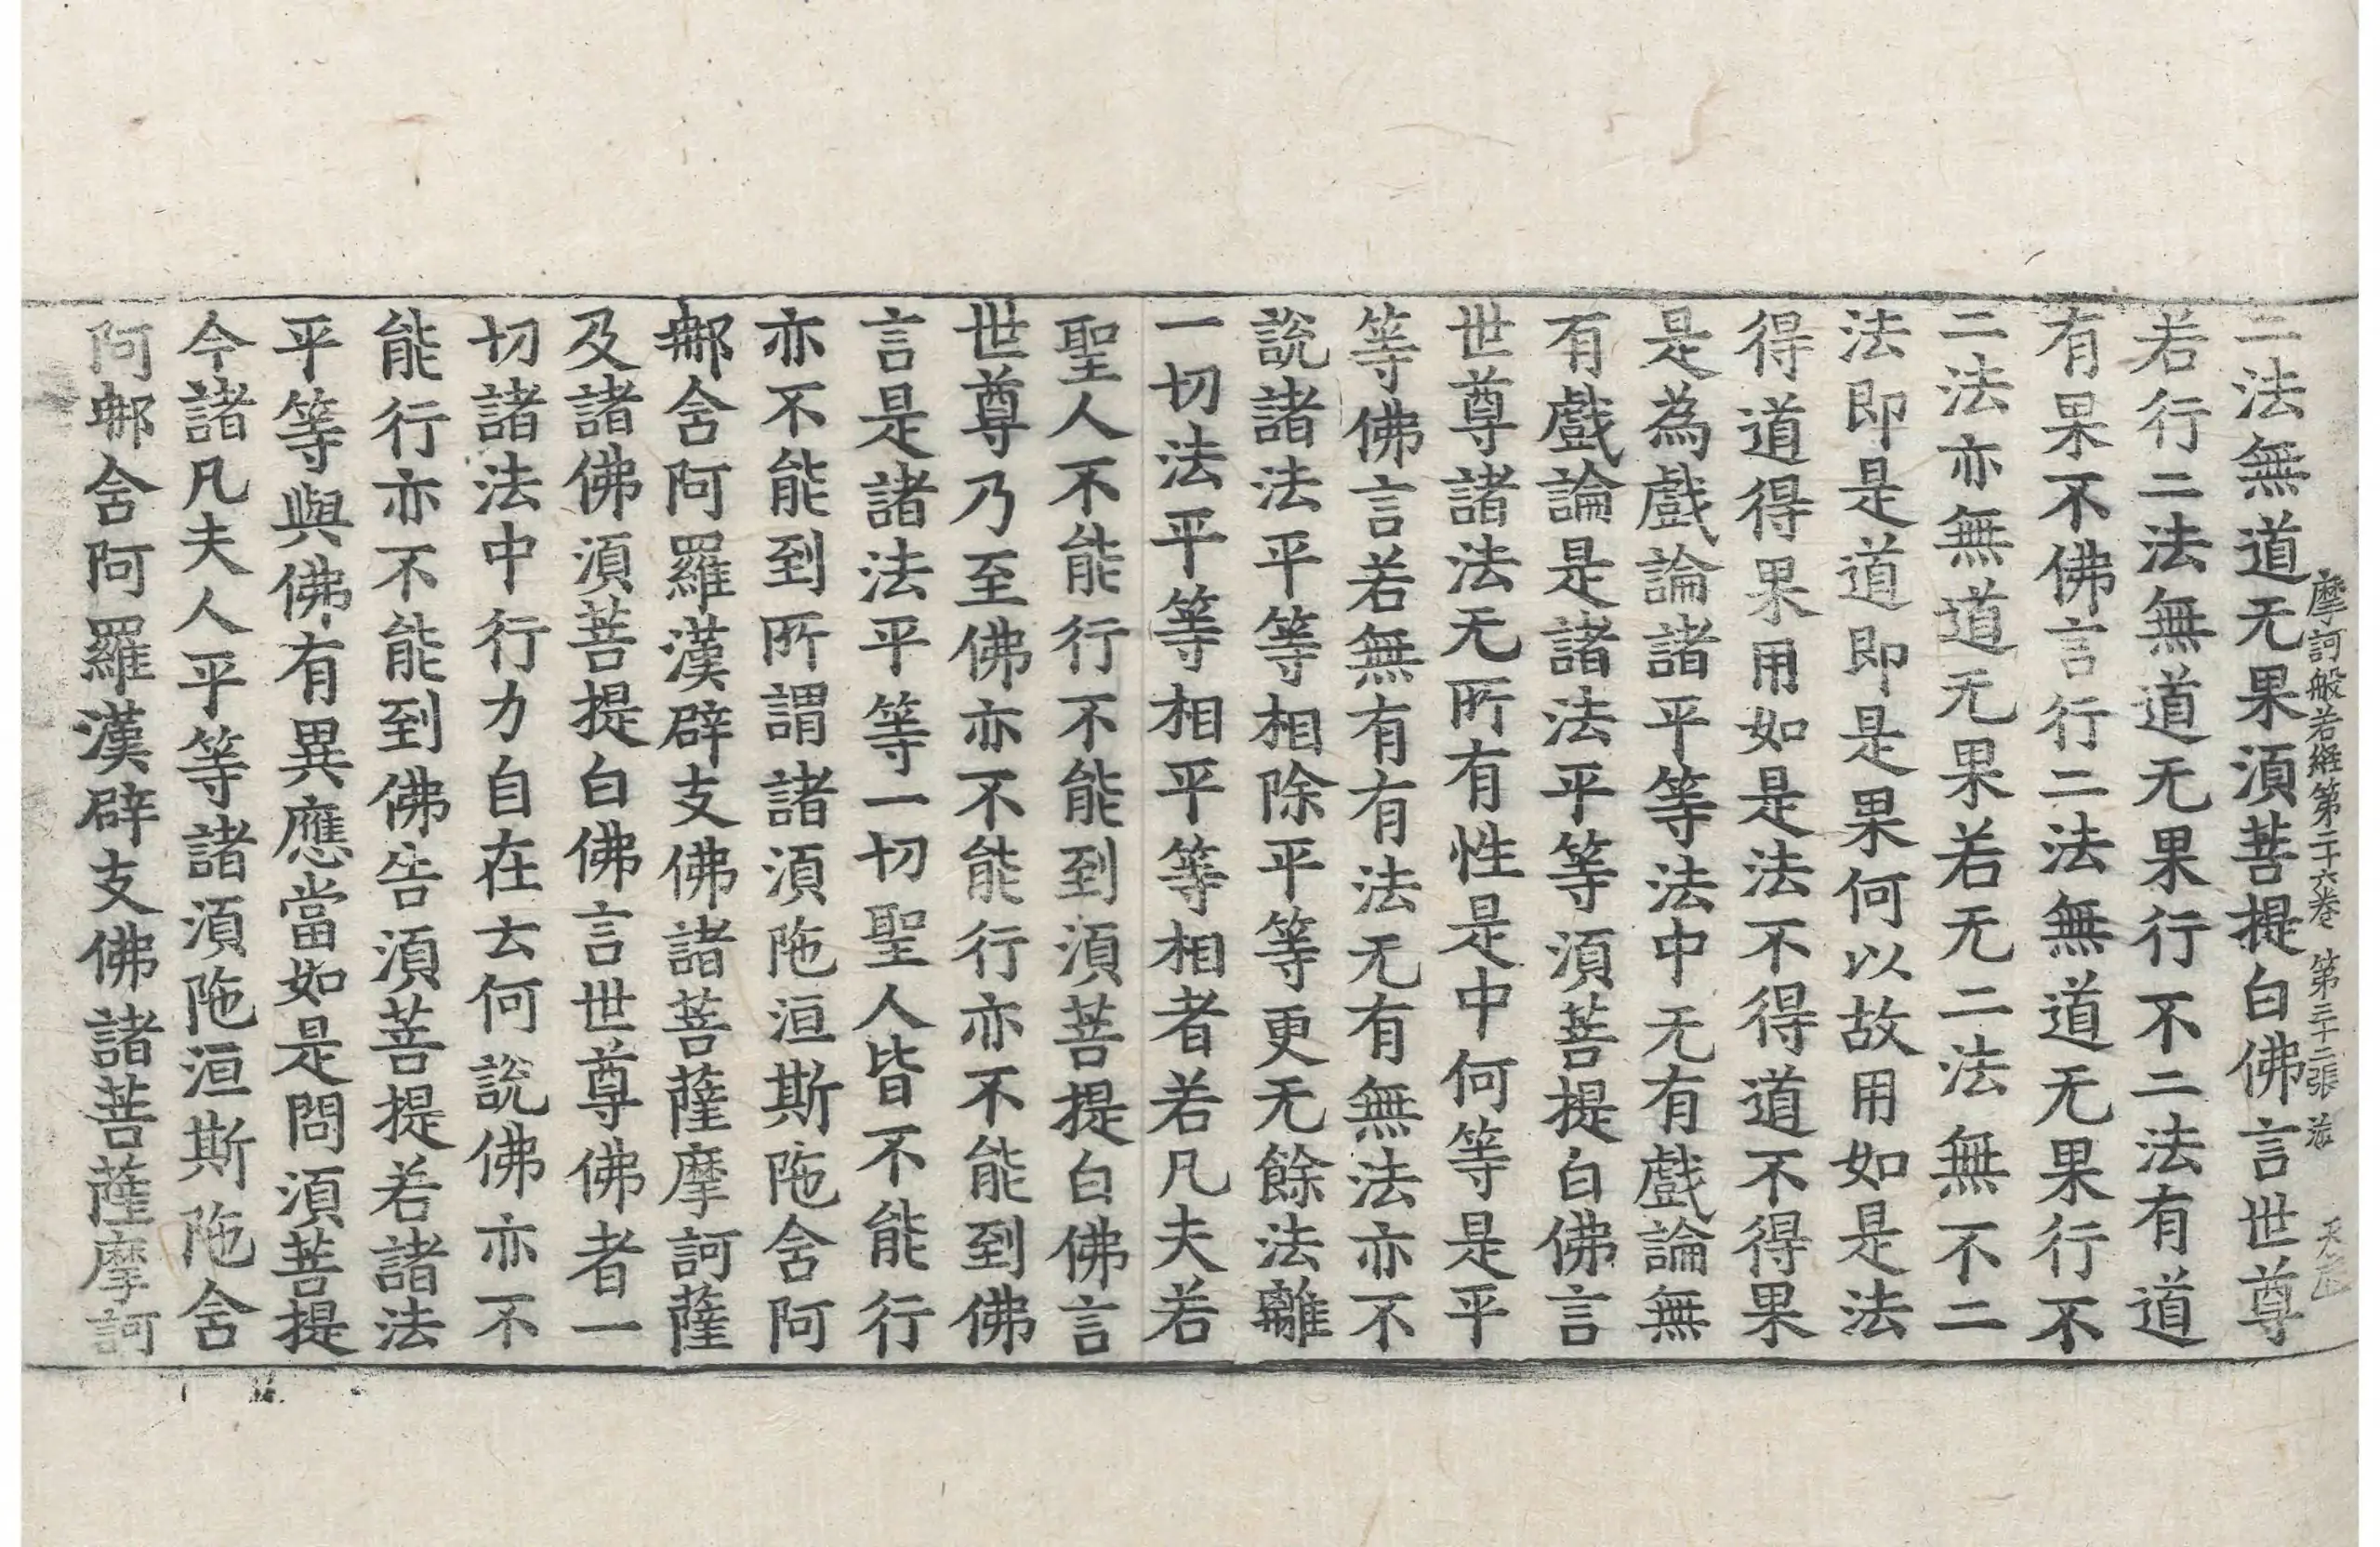 摩訶般若經第二十六卷 第三十二張
二法無道无果須菩提白佛言世尊
若行二法無道无果行不二法有道
有果不佛言行二法無道无果行不
二法亦無道无果若无二法無不二
法即是道即是果何以故用如是法
得道得果用如是法不得道不得果
是為戲論諸平等法中无有戲論無
有戲論是諸法平等須菩提白佛言
世尊諸法无所有性是中何等是平
等佛言若無有有法无有無法亦不
說諸法平等相除平等更无餘法離
一切法平等相平等相者若凡夫若
聖人不能行不能到須菩提白佛言
世尊乃至佛亦不能行亦不能到佛
言是諸法平等一切聖人皆不能行
亦不能到所謂諸須陁洹斯陁含阿
那含阿羅漢辟支佛諸菩薩摩訶薩
及諸佛須菩提白佛言世尊佛者一
切諸法中行力自在云何說佛亦不
能行亦不能到佛告須菩提若諸法
平等與佛有異應當如是問須菩提
今諸凡夫人平等諸須陁洹斯陁含
阿那含阿羅漢辟支佛諸菩薩摩訶